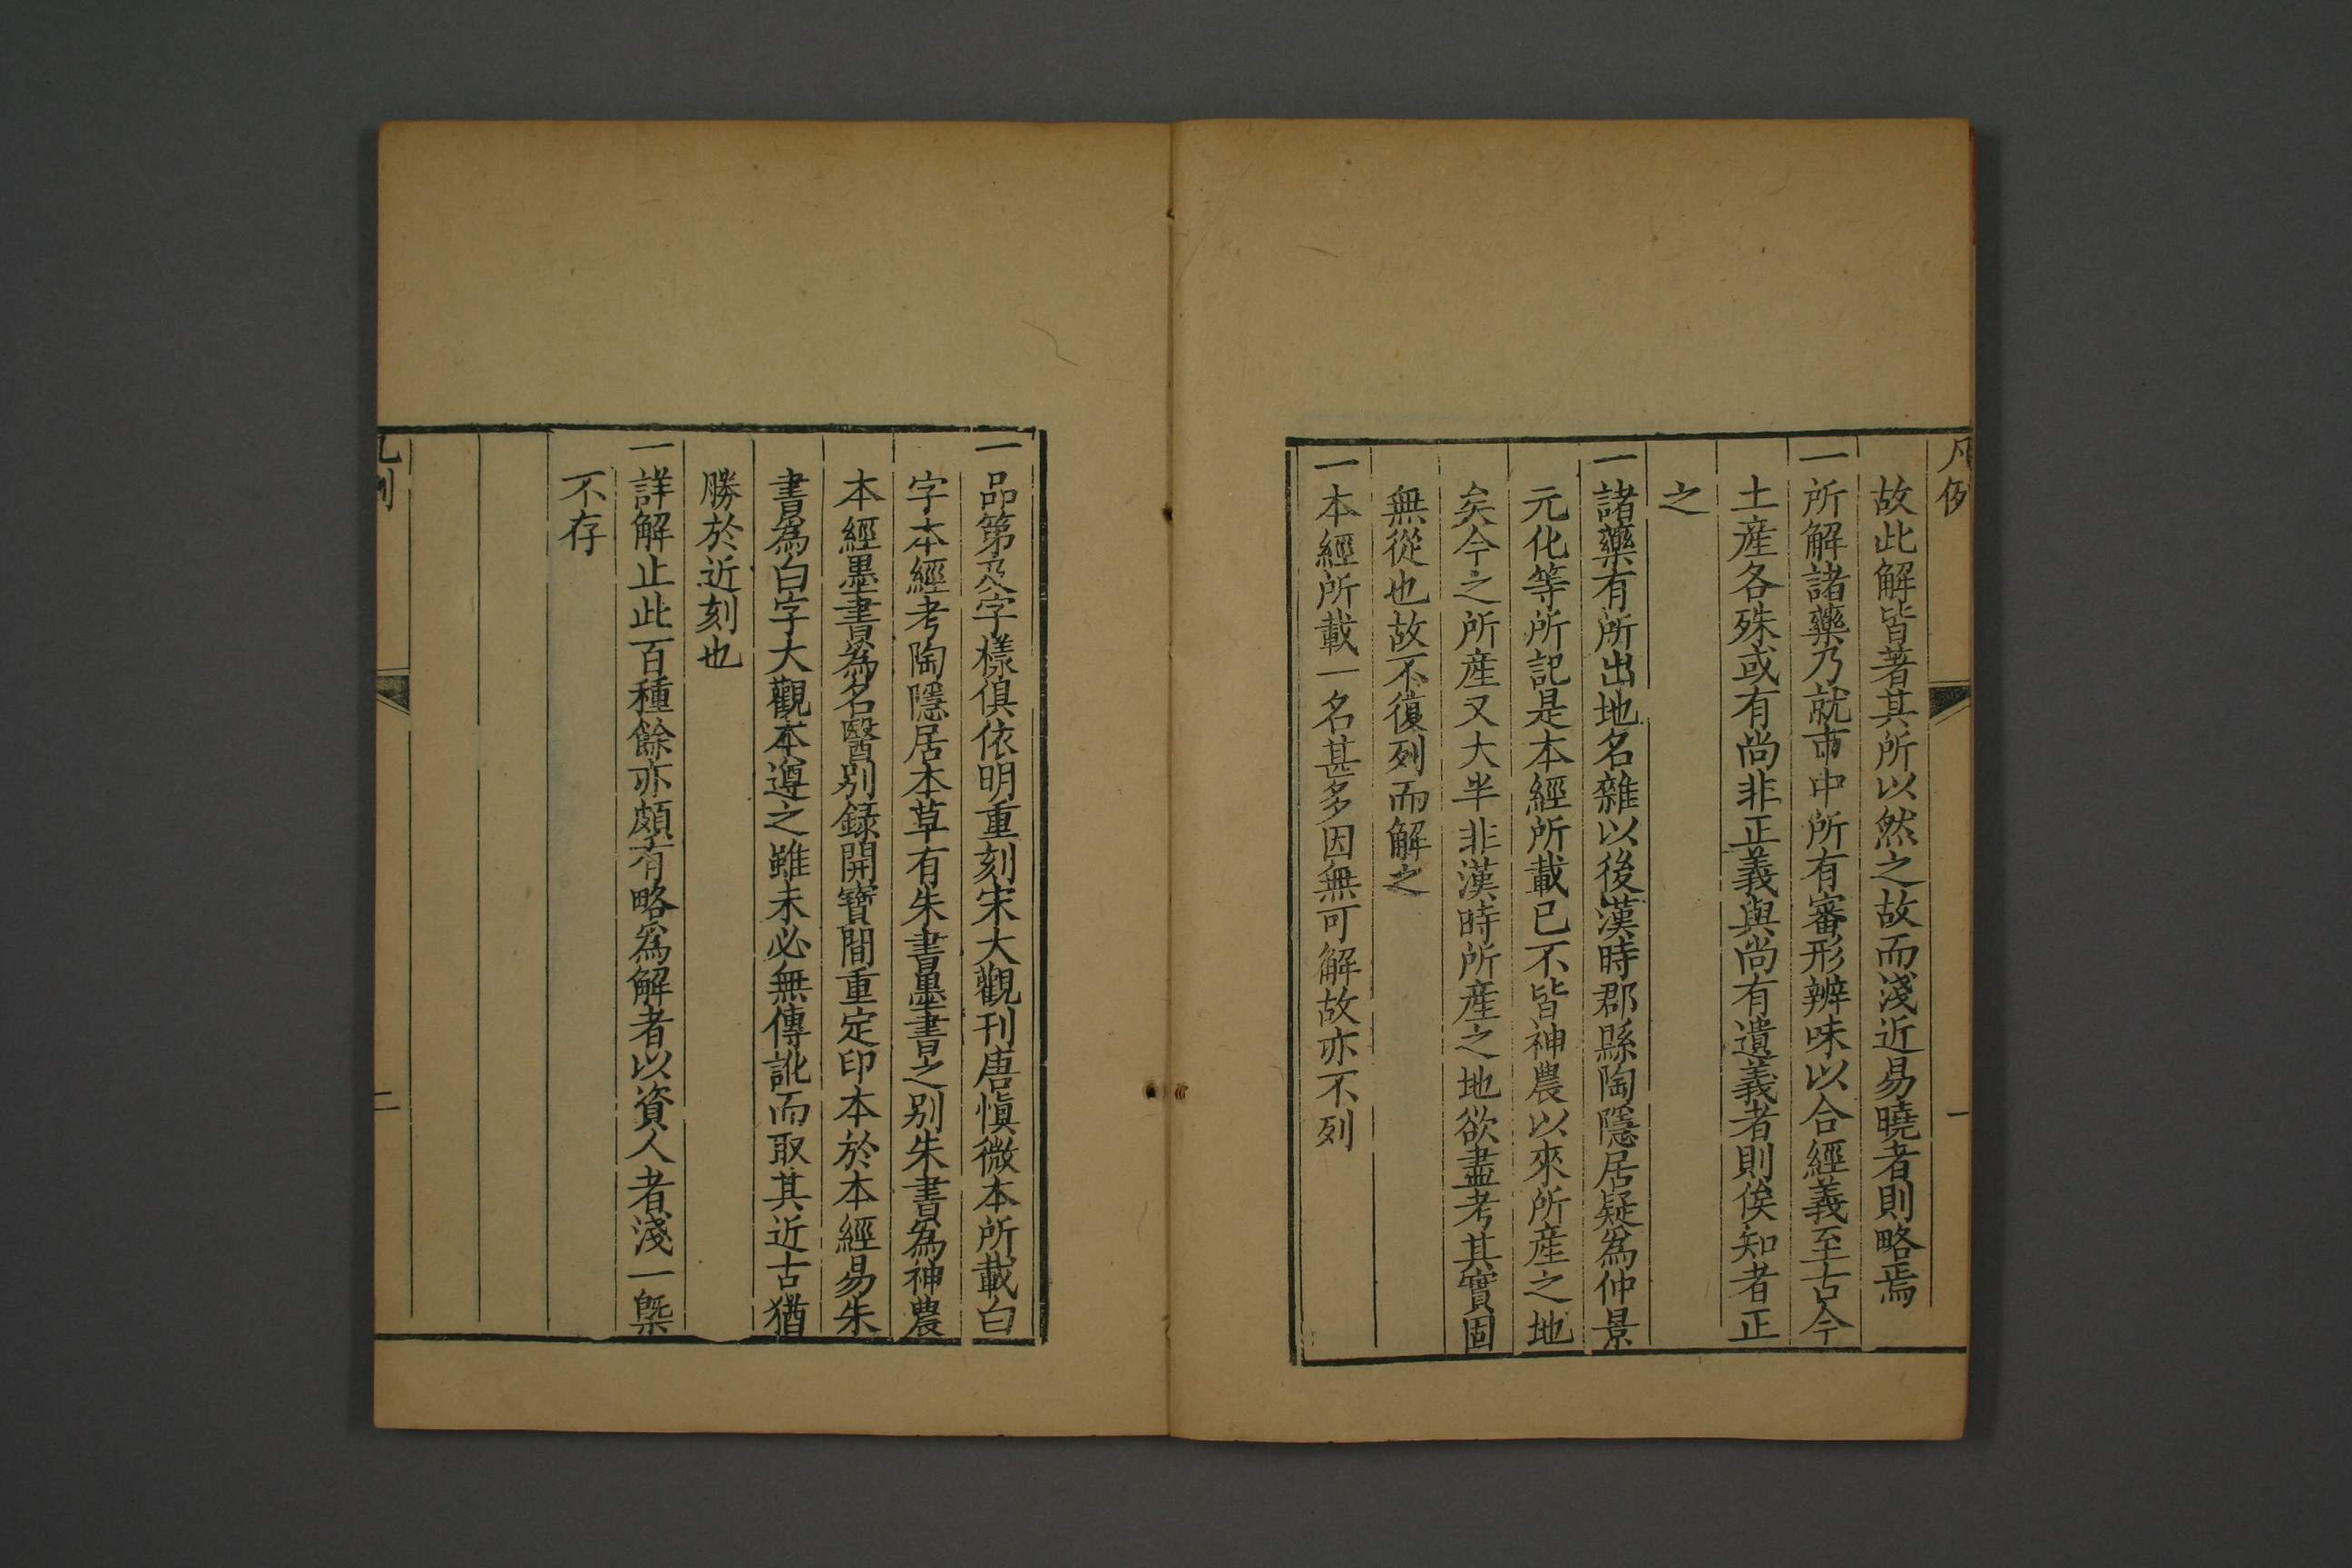 凡例
一
故此解皆著其所以然之故而淺近易曉者則略焉
一所解諸藥乃就市中所有審形辨味以合經義至古今
土産各殊或有尚非正義與尚有遺義者則俟知者正
之
一諸藥有所出地名雜以後漢時郡縣陶隱居疑為仲景
元化等所記是本經所載已不皆神農以來所産之地
矣今之所産又大半非漢時所産之地欲盡考其實固
無從也故不復列而解之
一本經所載一名甚多因無可解故亦不列
一品第及字樣俱依明重刻宋大觀刊唐慎微本所載白
字本經考陶隱居本草有朱書墨書之別朱書為神農
本經墨書為名醫別錄開寶間重定印本於本經易朱
書為白字大觀本遵之雖未必無傳訛而取其近古猶
勝於近刻也
一詳解止此百種餘亦頗有略為解者以資人者淺一槩
不存
凡例
二